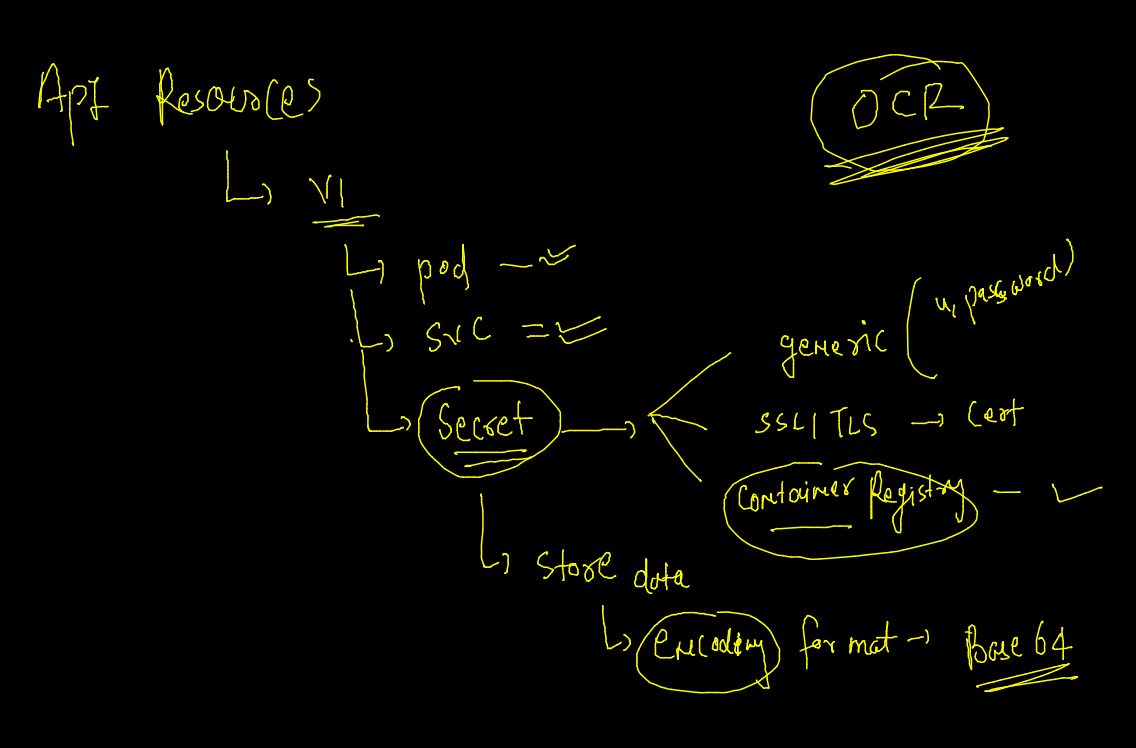 Api Resources
OCR
V1
pod
svc
generic (u, password)
Secret
SSL/TLS → Cert
Container Registry
store data
encoding format → Base 64